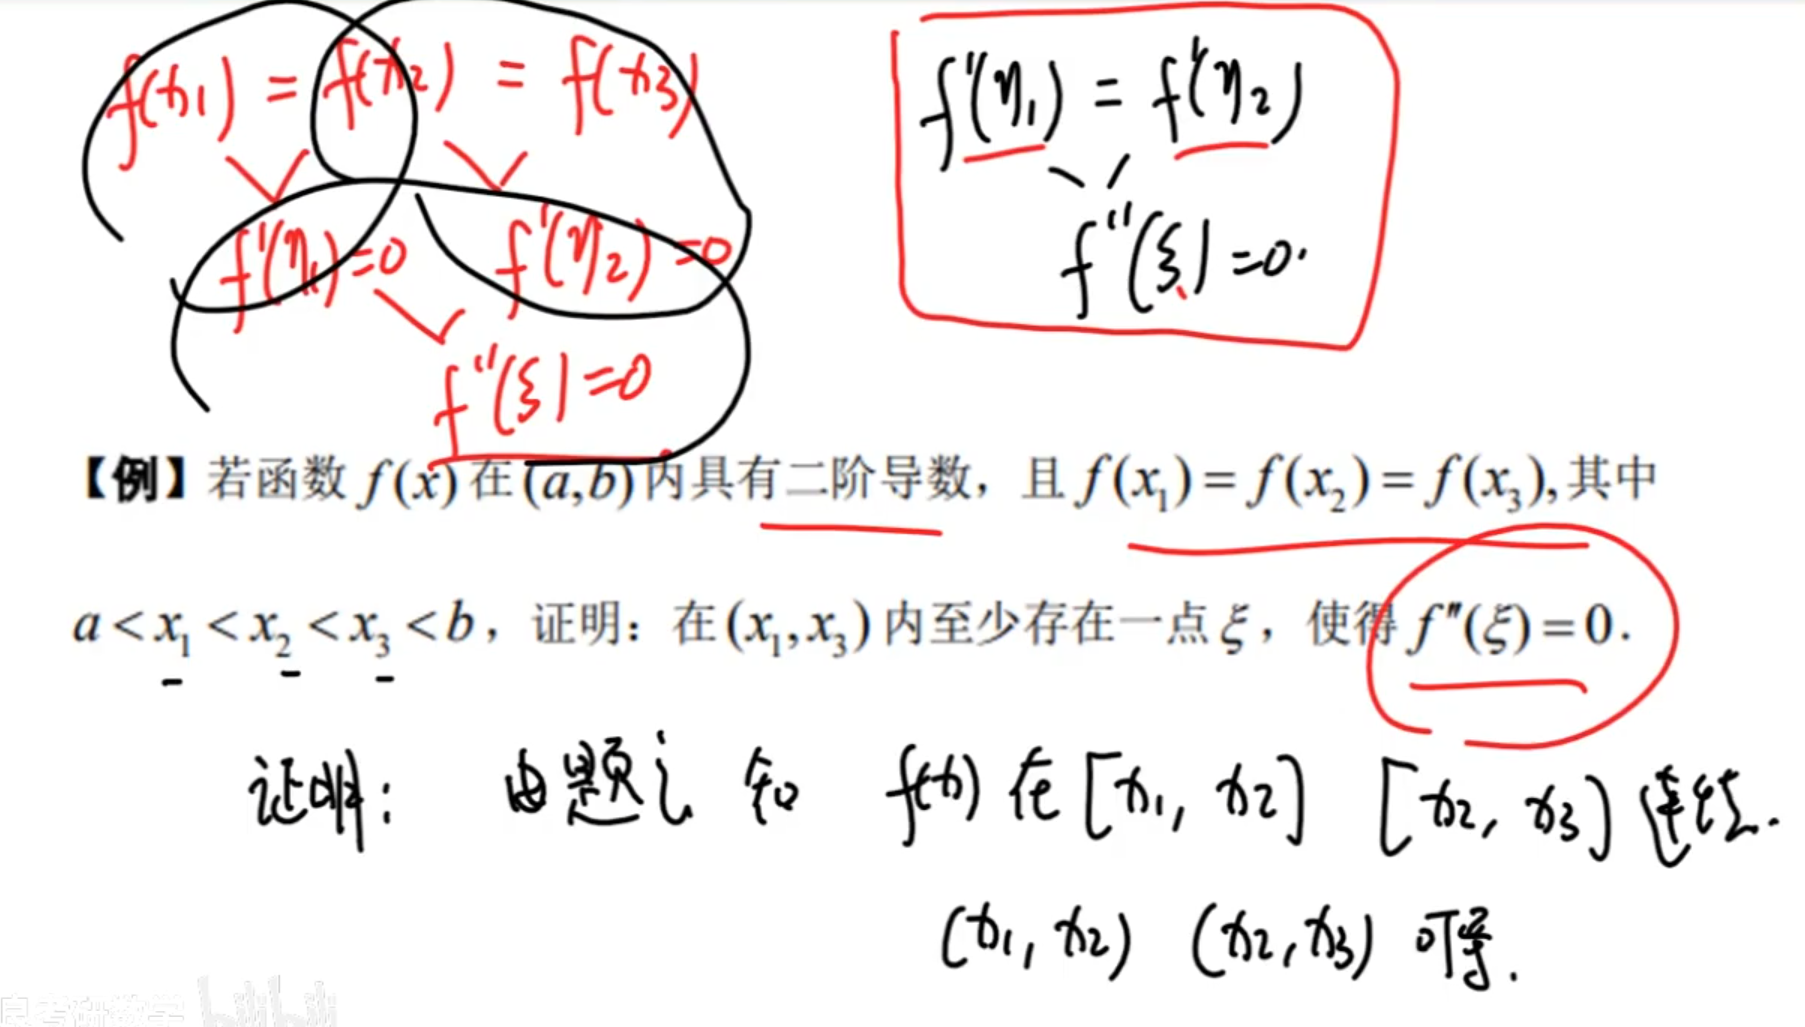 f(x1) = f(x2) = f(x3)
f'(η1)=0 f'(η2)=0
f''(ξ)=0
f'(η1) = f'(η2)
f''(ξ)=0.
【例】若函数 f(x) 在 (a,b) 内具有二阶导数，且 f(x₁) = f(x₂) = f(x₃), 其中
a < x₁ < x₂ < x₃ < b，证明：在 (x₁, x₃) 内至少存在一点 ξ，使得 f″(ξ) = 0.
证明： 由题意 知 f(x) 在 [x1, x2] [x2, x3] 连续.
(x1, x2) (x2, x3) 可导.
考研数学 bilibili